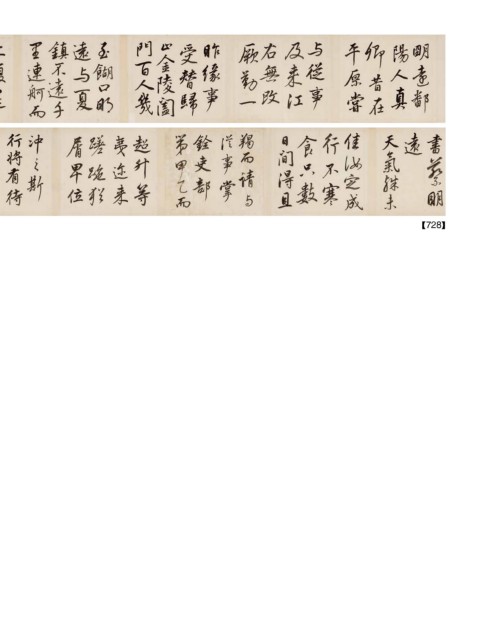 明遠鄱
陽人真
卿昔在
平原嘗
与從事
及来江
右無改
厥勤一
昨緣事
受替歸
止金陵闔
門百人幾
至餬口明
遠与夏
鎮不遠千
里連舸而
書蔡明
遠
天氣殊未
佳汝定成
行不寒
食只數
日間得且
而請与
從事掌
銓吏部
第甲乙而
超升等
夷迩来
蹉跎猶
屑卑位
沖之斯
行将有待
【728】